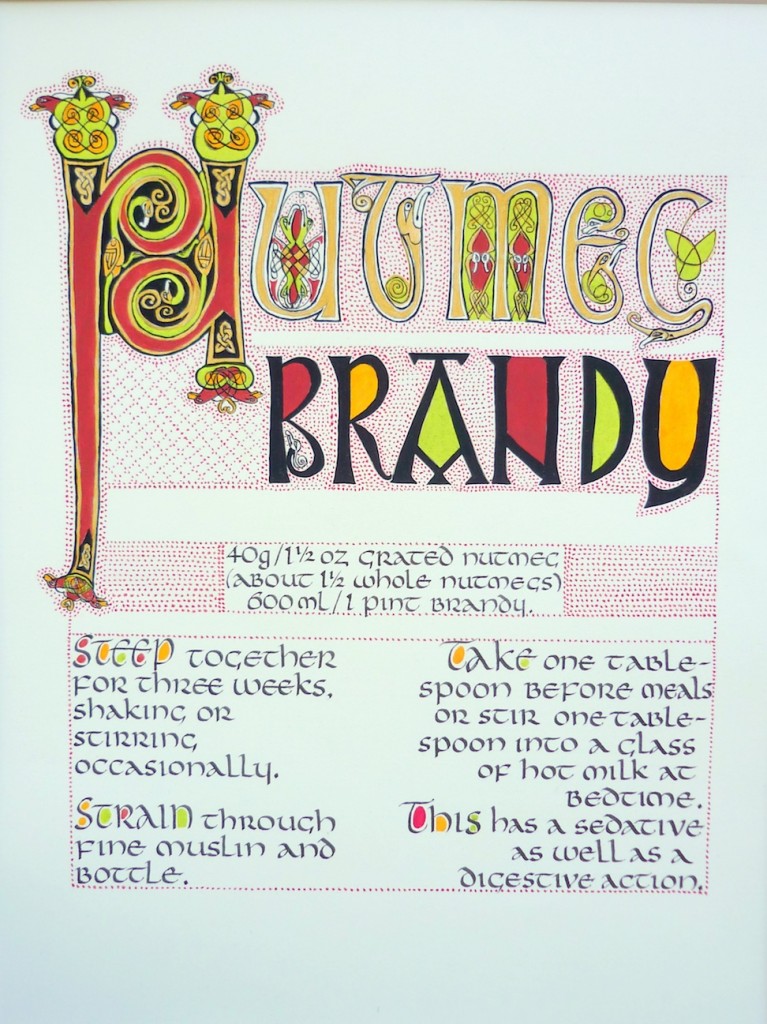 Nutmeg
BRANDY
40g/1½ oz grated nutmeg
(about 1½ whole nutmegs)
600ml/1 pint brandy.
Steep together
for three weeks,
shaking or
stirring
occasionally.
Strain through
fine muslin and
bottle.
Take one table-
spoon before meals
or stir one table-
spoon into a glass
of hot milk at
bedtime.
This has a sedative
as well as a
digestive action.